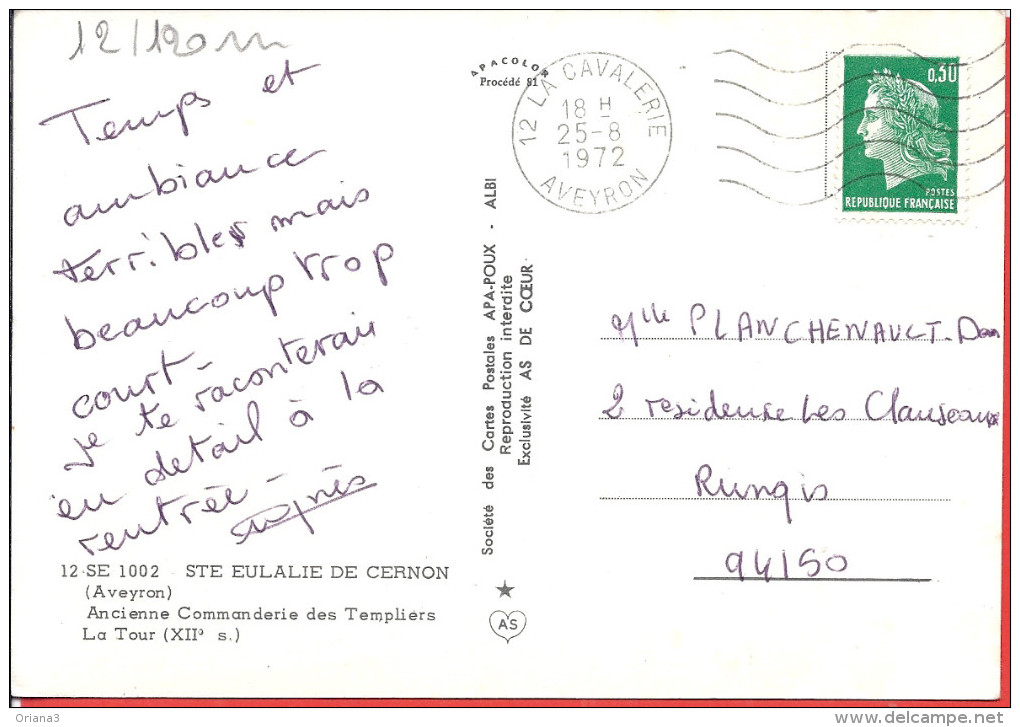 12/120m
Temps et
ambiance
terribles mais
beaucoup trop
court-
je te raconterai
en detail à la
rentrée - Agnès
12 SE 1002 STE EULALIE DE CERNON
(Aveyron)
Ancienne Commanderie des Templiers
La Tour (XIIᵉ s.)
APACOLOR
Procédé 81
Société des Cartes Postales APA-POUX - ALBI
Reproduction interdite
Exclusivité AS DE CŒUR
AS
12 LA CAVALERIE
18 H
25-8
1972
AVEYRON
0,30
POSTES
REPUBLIQUE FRANÇAISE
Mlle PLANCHENAULT
2 residence Les Clauseaux
Rungis
94150
Oriana3
www.delcampe.net